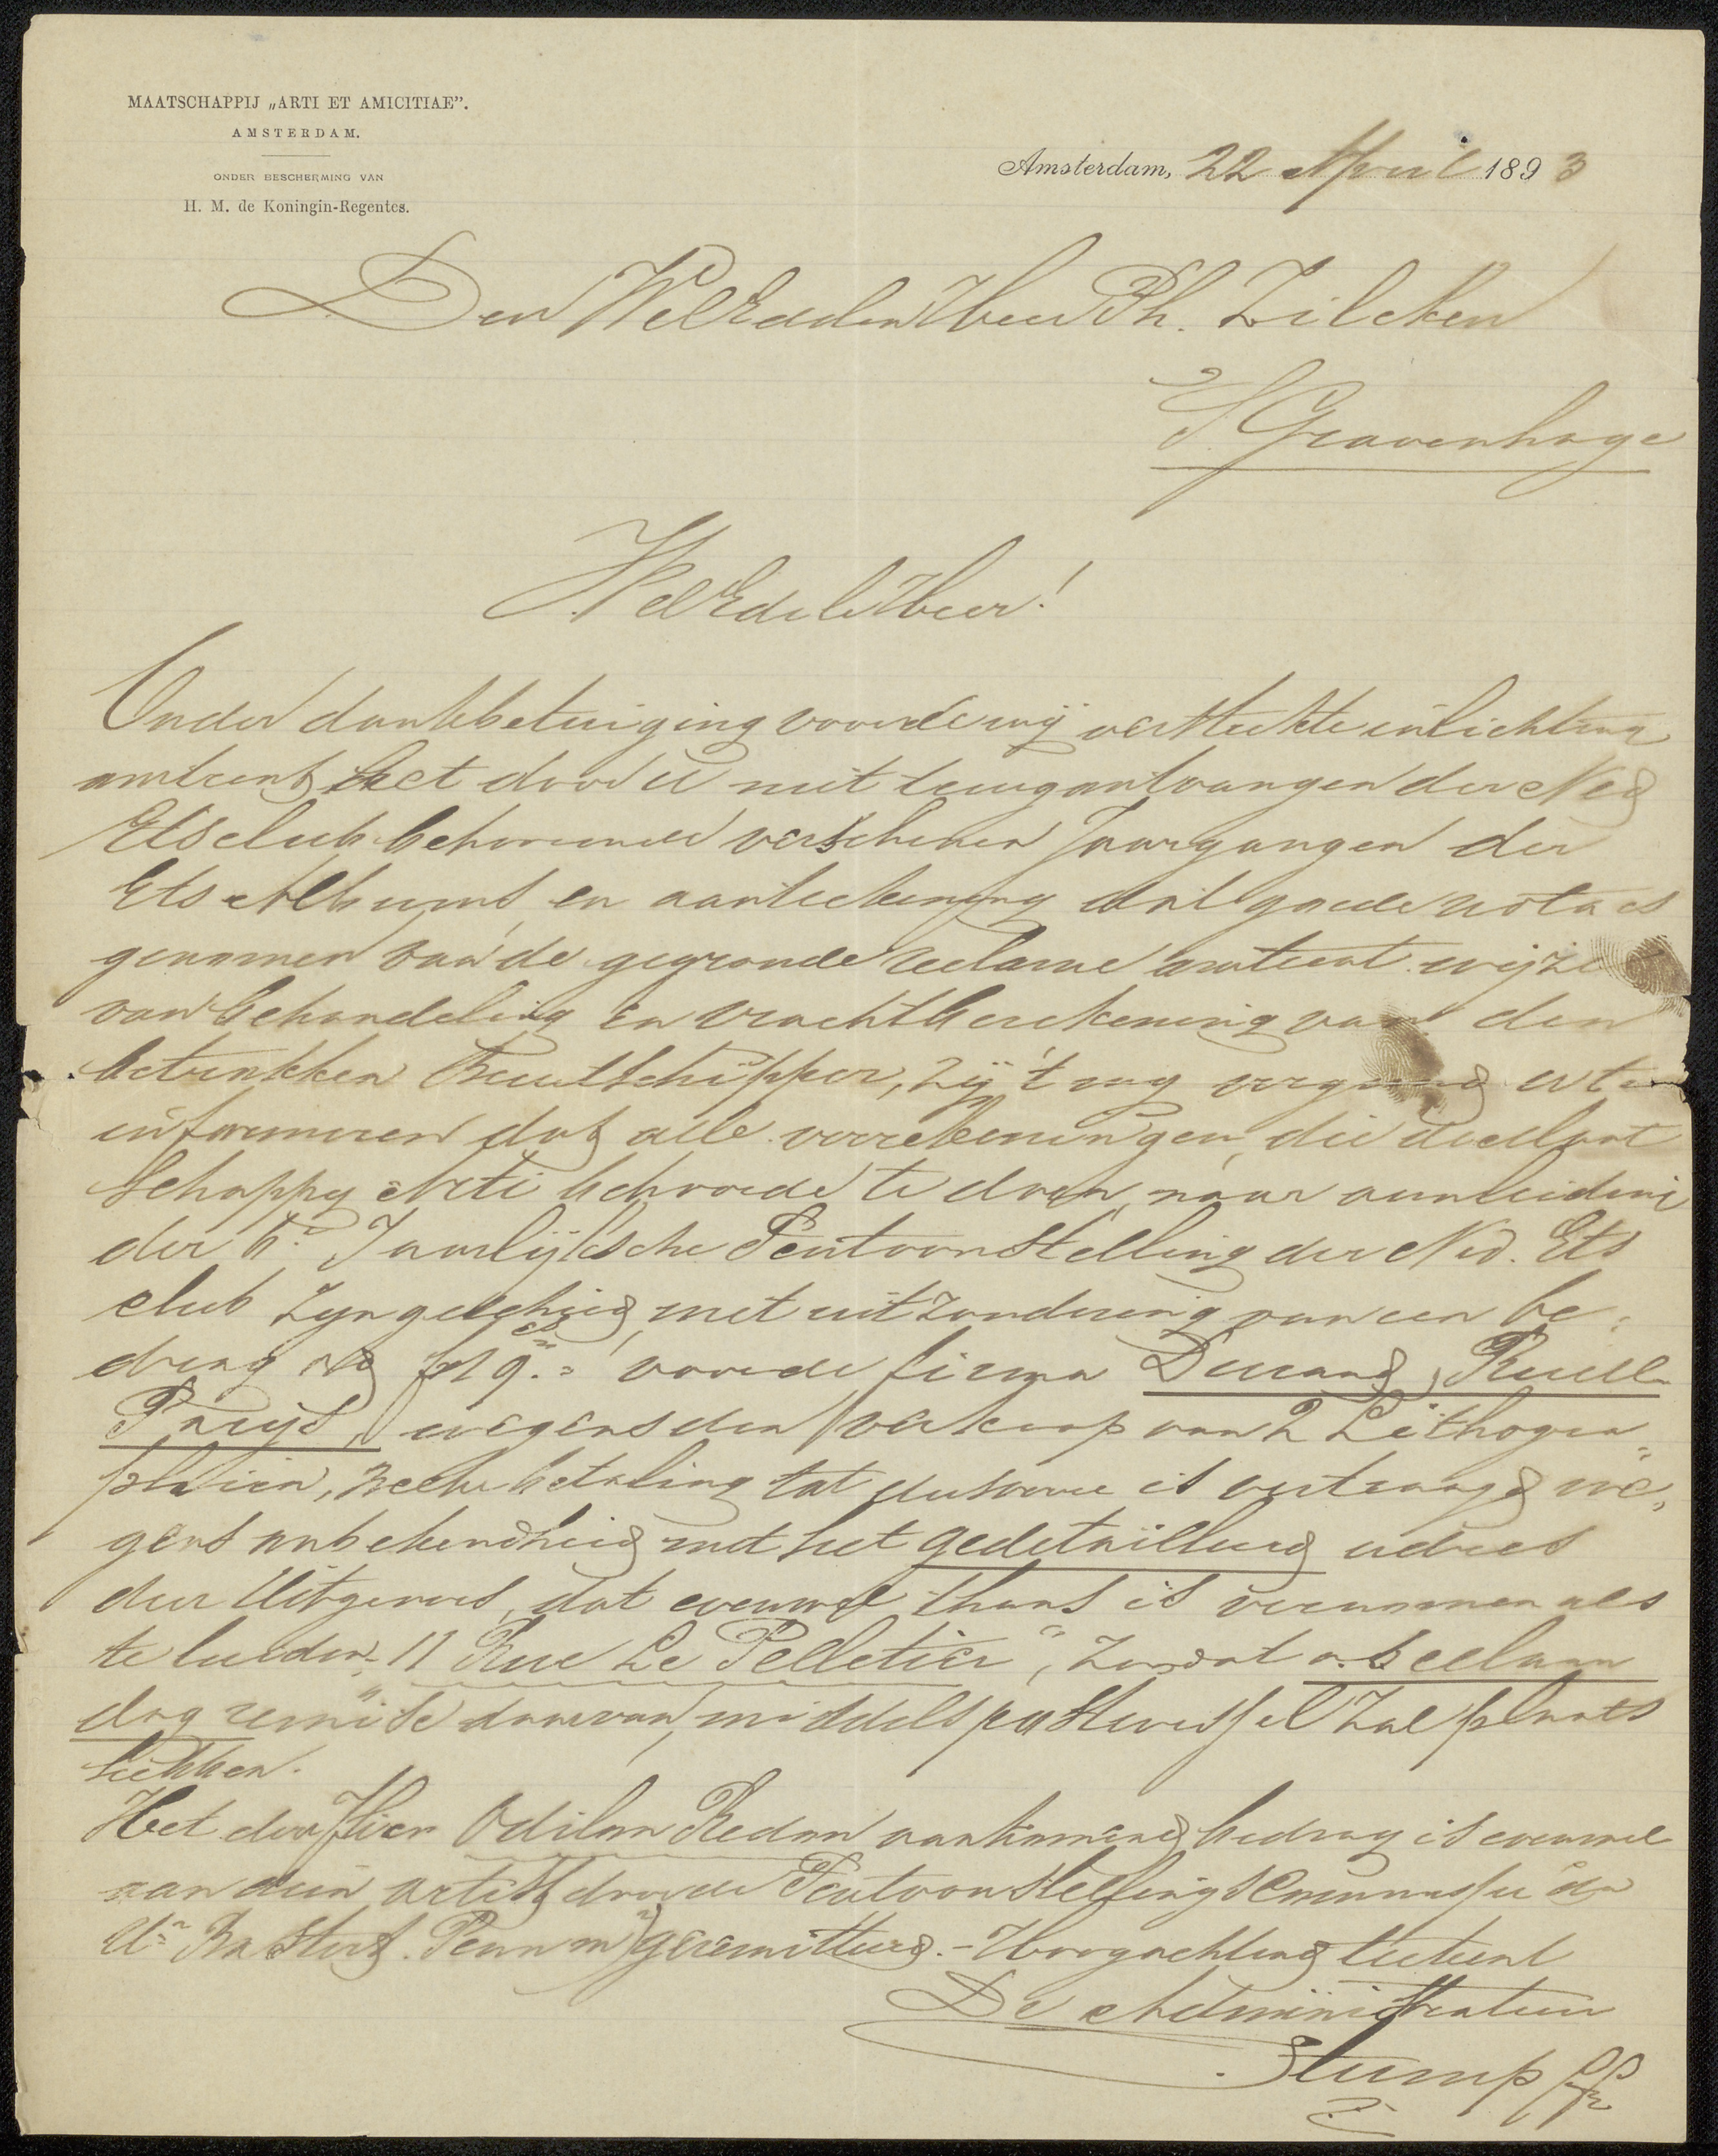 MAATSCHAPPIJ „ARTI ET AMICITIAE”.
AMSTERDAM.
ONDER BESCHERMING VAN
H. M. de Koningin-Regentes.
Amsterdam, 22 April 1893
Den WelEdelen Heer Ph. Zilcken
'S Gravenhage
WelEdele Heer!
Onder dankbetuiging voor de mij verstrekte inlichting
omtrent het door U niet terugontvangen der Ned
Etsclub behoorende verschenen Jaargangen der
Ets Albums en aanteekening dat goede nota is
genomen van de gegronde reclame omtrent wijze
van behandeling en vrachtberekening van den
betrokken Beurtschipper, zij 't mij vergund U te
informeeren dat alle verrekeningen, die de Maat
schappy Arti behoorde te doen, naar aanleiding
der Jaarlijksche Tentoonstelling der Ned. Ets
club zyn geschied, met uitzondering van een be=
drag voor de firma Durand, Ruell
Parijs, wegens den verkoop van 2 Lithogra=
phieën, welke betaling tot dusverre is vertraagd we,
gens onbekendheid met het gedetailleerd adres
der Uitgevers, dat evenwel thans is vernomen als
te luiden „11 Rue Le Pelletier“, zoodat a.s. Maan
dag remise daarvan, middels postwissel zal plaats
hebben.
Het den Heer Odilon Redon aankomend bedrag is evenwel
aan dien artist door de Tentoonstellings Commissie de
Hr Bastert Penn.mr geremitteerd. - Hoogachtend teekent
De Administrateur
Stumpff